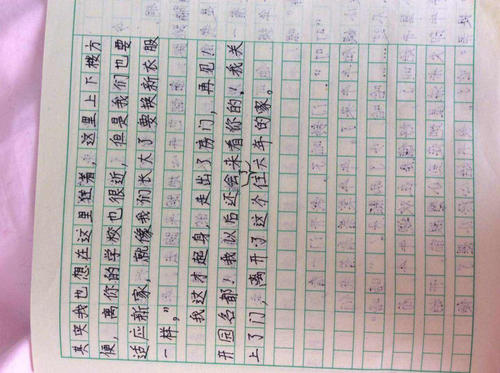 其实我也想在这里住着，这里上下楼方
便，离你的学校也很近，但是我们也要
适应新家，就像我们长大了要换新衣服
一样。”
我这才起身，走出了房门，再见！
开园名都！我以后还会来看你的！我关
上了门，离开了这个住六年的家。